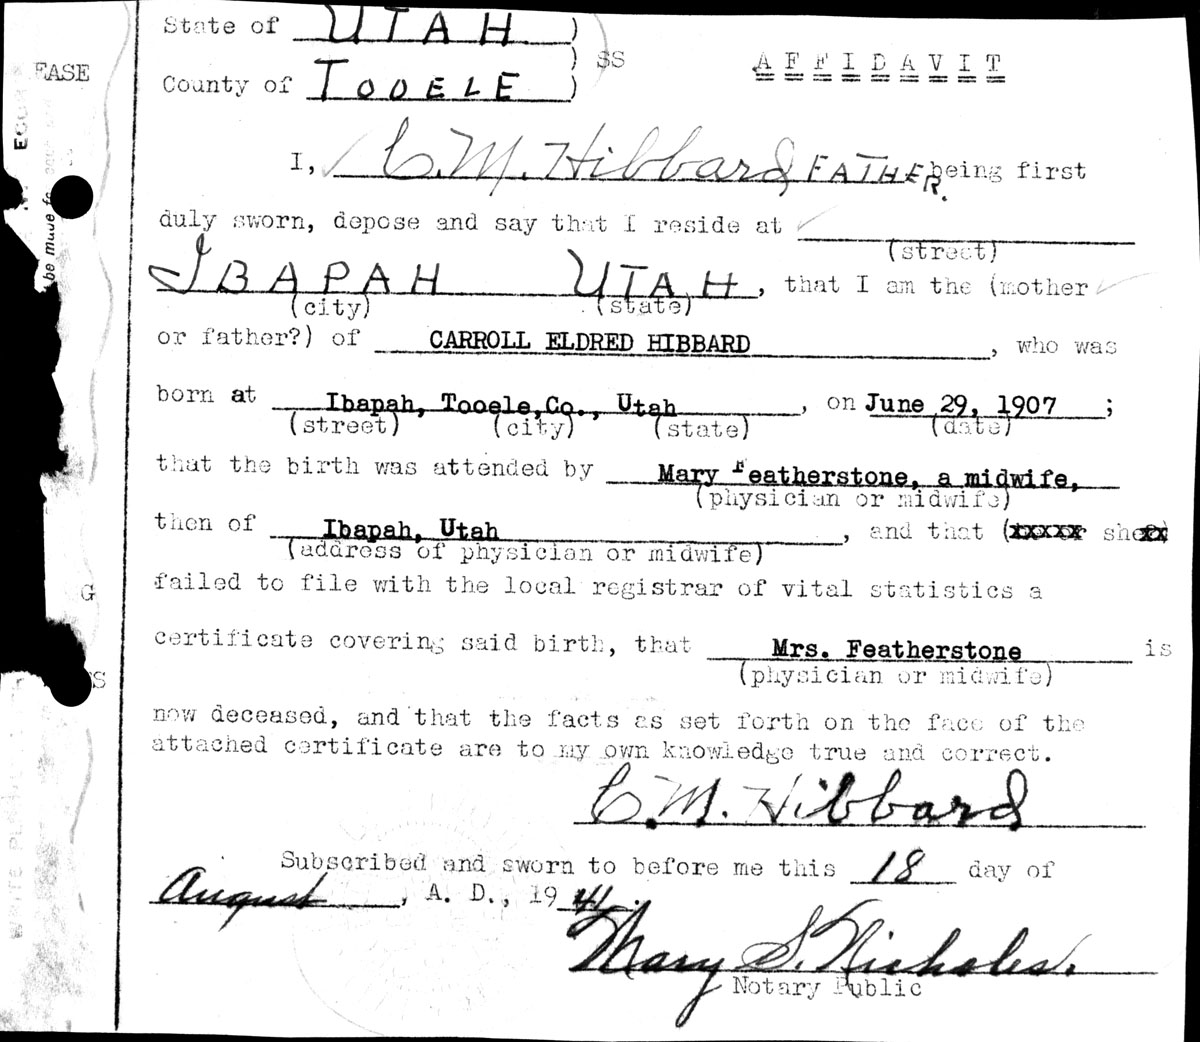 State of UTAH )
) SS
County of TOOELE )
AFFIDAVIT
EASE
I, C. M. Hibbard, FATHER. being first
duly sworn, depose and say that I reside at
(street)
IBAPAH UTAH, that I am the (mother
(city) (state)
or father?) of CARROLL ELDRED HIBBARD, who was
born at Ibapah, Tooele,Co., Utah, on June 29, 1907;
(street) (city) (state) (date)
that the birth was attended by Mary Featherstone, a midwife,
(physician or midwife)
then of Ibapah, Utah, and that (xxxxx she
(address of physician or midwife)
failed to file with the local registrar of vital statistics a
G
certificate covering said birth, that Mrs. Featherstone is
(physician or midwife)
now deceased, and that the facts as set forth on the face of the
attached certificate are to my own knowledge true and correct.
C. M. Hibbard
Subscribed and sworn to before me this 18 day of
August, A. D., 1941.
Mary S. Nicholes.
Notary Public
be made fo